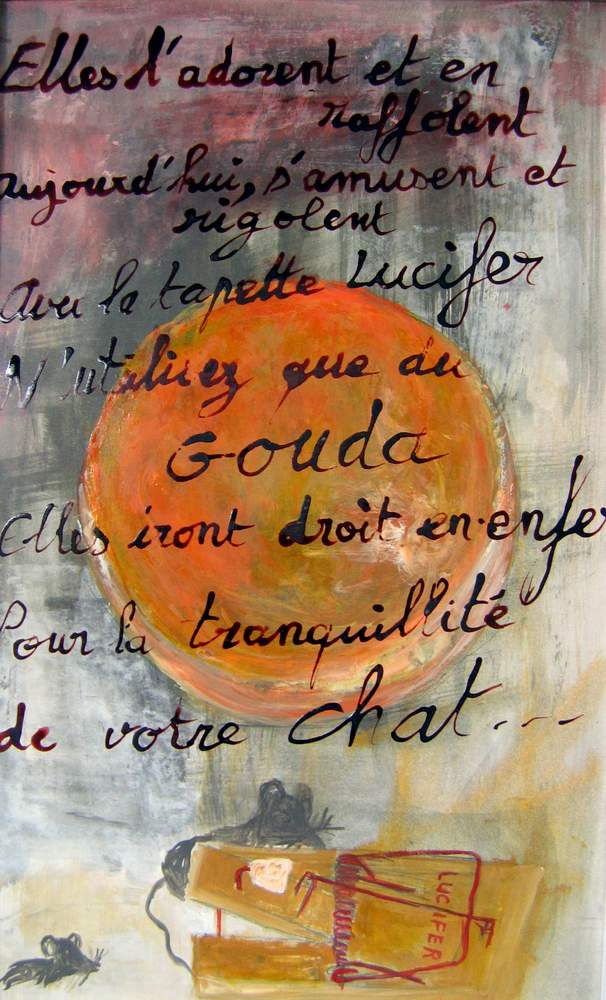 Elles l'adorent et en
raffolent
aujourd'hui, s'amusent et
rigolent
Avec la tapette Lucifer
N'utilisez que du
Gouda
Elles iront droit en enfer
Pour la tranquillité
de votre chat...
LUCIFER